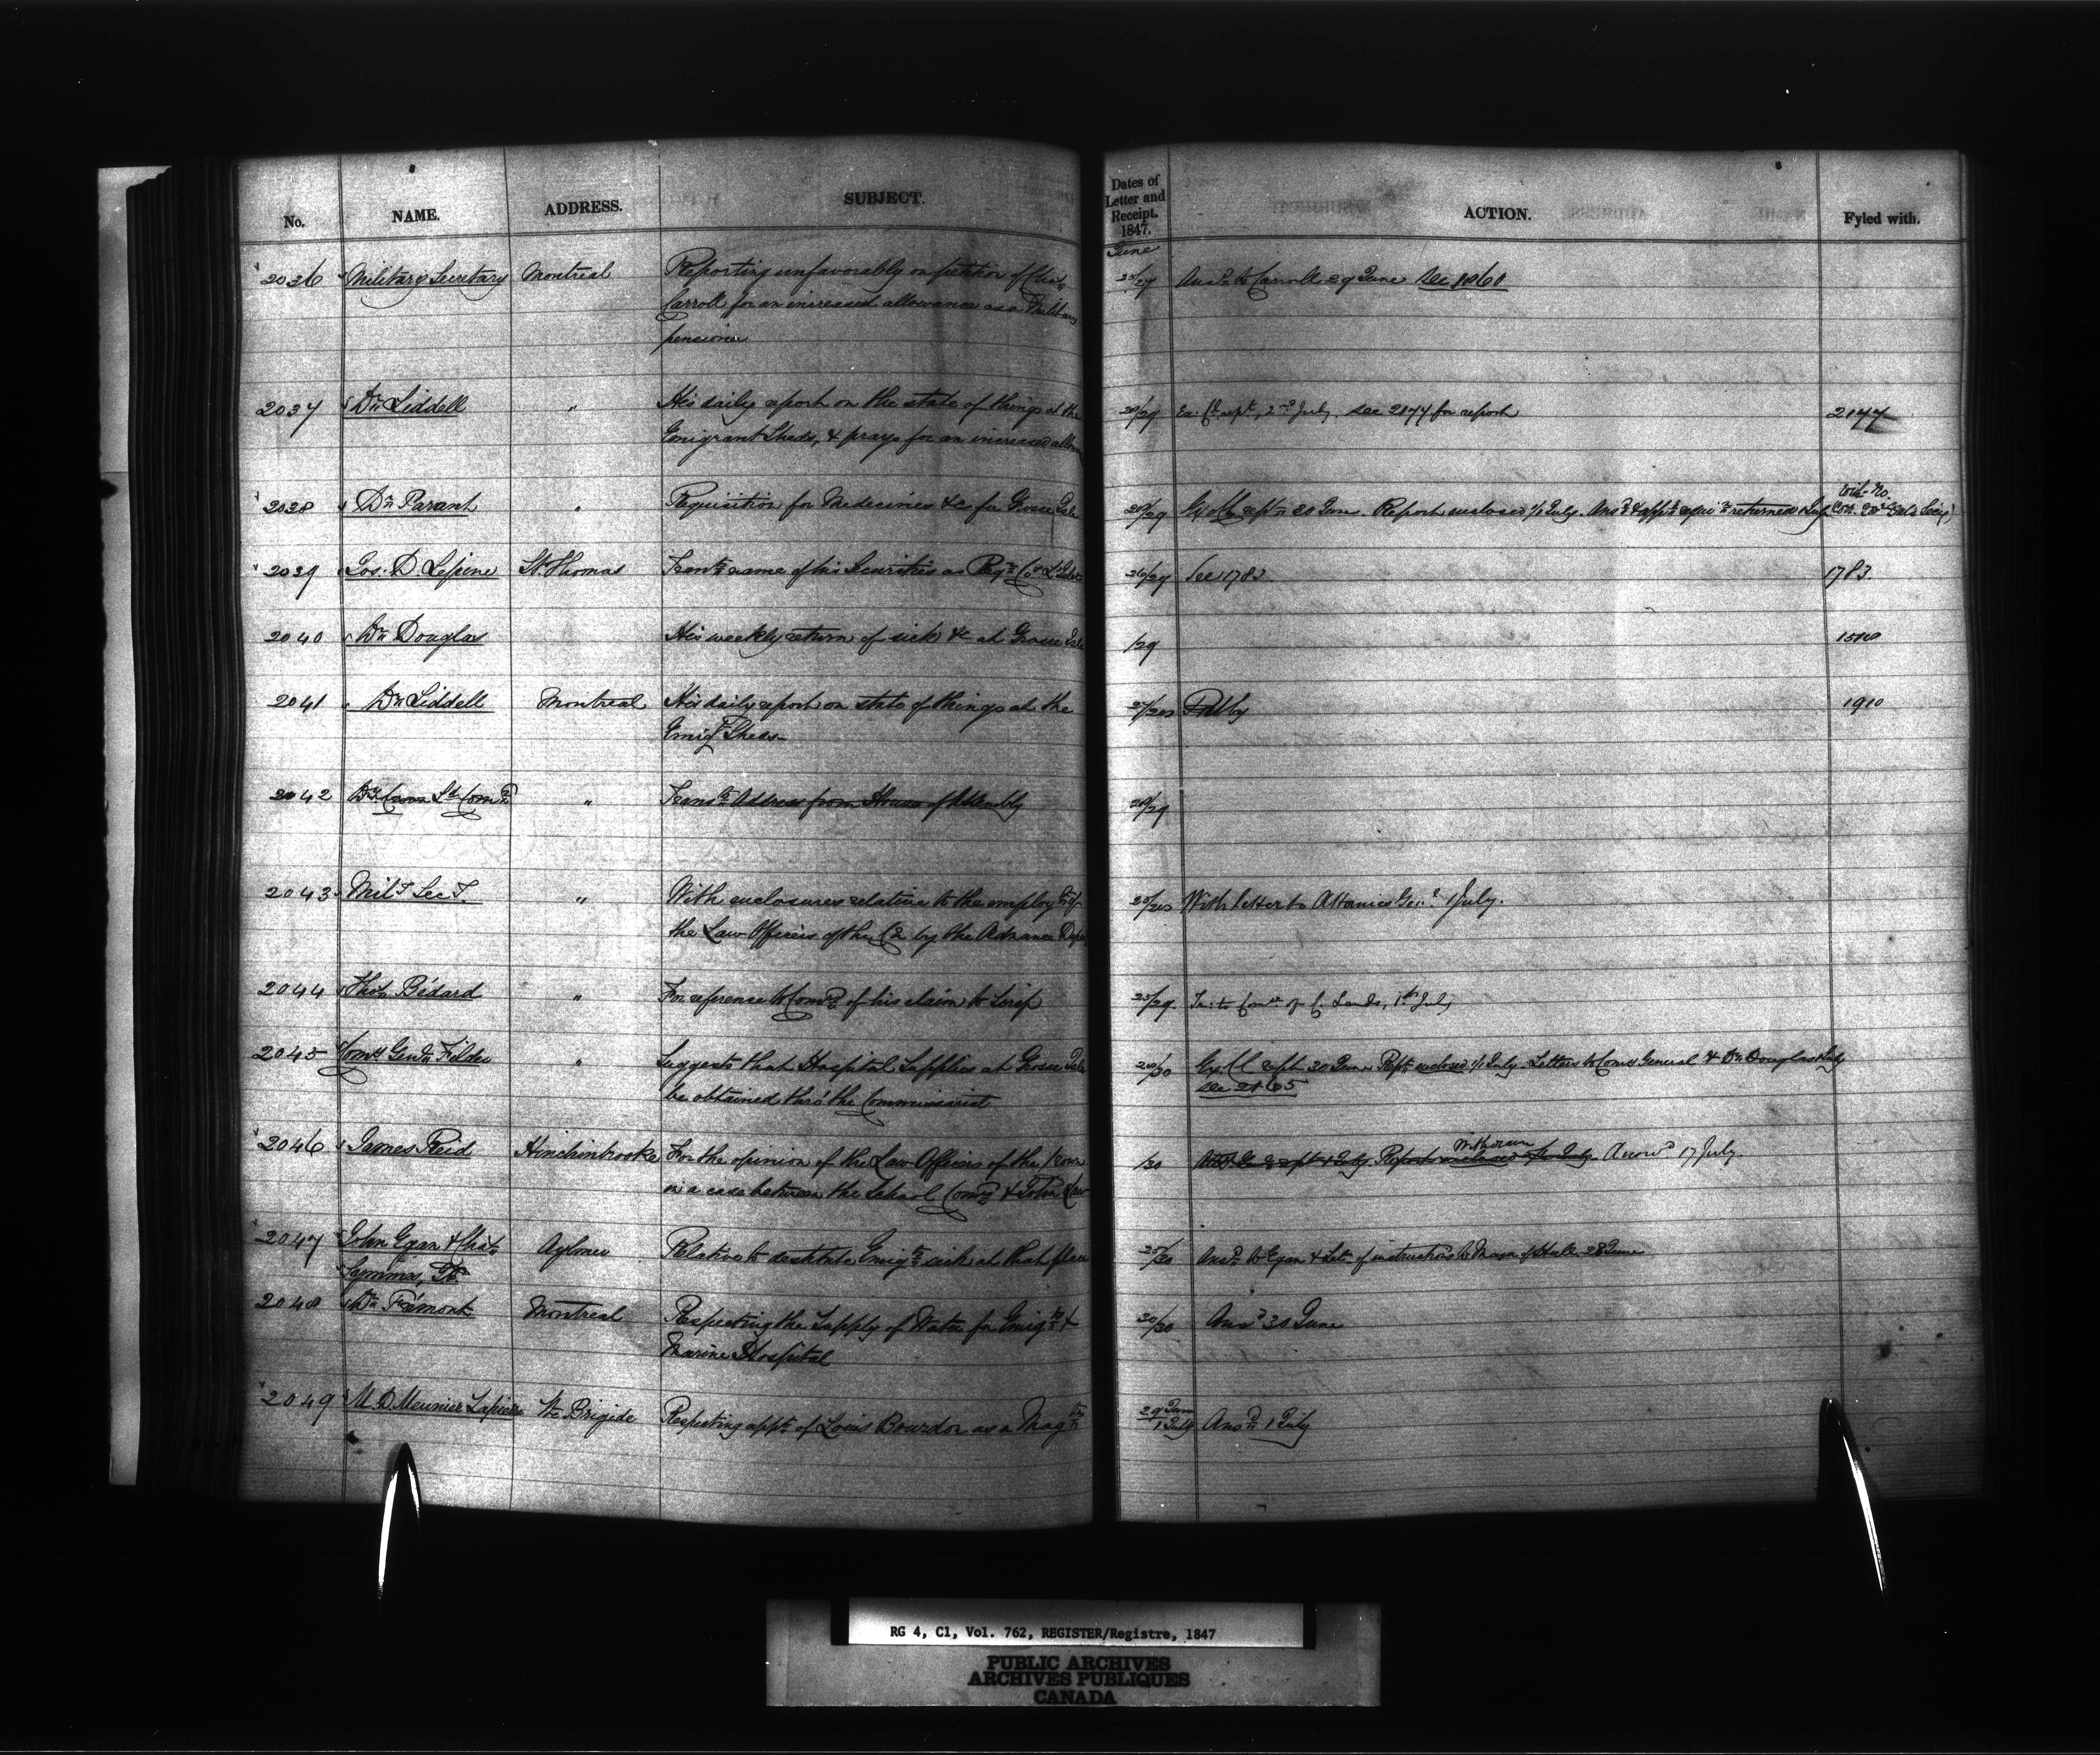 No. NAME. ADDRESS. SUBJECT. Dates of Letter and Receipt. 1847. ACTION. Fyled with.
June
2036 Military Secretary Montreal Reporting unfavorably on petition of Chas Carroll for an increased allowance as a Military pensioner 25/29 Ansd to Carroll 29 June See 1861
2037 Dr. Liddell " His daily report on the state of things at the Emigrant Sheds, & prays for an increased allow 28/29 Ex. Cl. rept, 2nd July. See 2174 for report 2177
2038 Dr. Parant " Requisition for Medecines &c for Grosse Isle 28/29 Ex Cl rept 30 June. Report enclosed 1/1 July. Ansd & appd requin returned July
2039 Jos. D. Lepine St. Thomas Transts name of his Securities as Regr Co L'Islet 26/29 See 1783 1783.
2040 Dr. Douglas His weekly return of sick &c at Grosse Isle /29
2041 Dr. Liddell Montreal His daily report on state of things at the Emigt Sheds 27/28 1910
2042 " Transts Address from House of Assembly 28/29
2043 Mily Secy. " With enclosures relative to the employt of the Law Officers of the Cn by the Ordnance Dept 25/28 With letter to Attorney Genl 1 July.
2044 Thos Bédard " For reference to Comrs of his claim to Scrip 25/29. to Comr of C. Lands, 1st July
2045 Comy Genl Filder " Suggests that Hospital Supplies at Grosse Isle be obtained thro' the Commissariat 28/30 Ex. Cl rept 30 June Rept enclosed 1/1 July. Letters to Comy General & Dr. Douglas July
See 2165
2046 James Reid Hinchinbrooke For the opinion of the Law Officers of the Crown in a case between the School Comrs & John /30 Att. G. rept 1 July. Report enclosed July Withdrawn Answd 17 July.
2047 John Egan & Chas Symmes, Aylmer Relative to destitute Emigts sick at that place 25/30 Ansd to Egan & Let. of instructions to Mayor of Hull 28 June
2048 Dr. Frémont Montreal Respecting the Supply of Water for Emigts & Marine Hospital 30/30 Ansd 30 June
2049 M. D. Meunier Lapierre Ste Brigide Respecting appt of Louis Bourdon as a Magte 29 June/1 July Ansd 1 July
RG 4, C1, Vol. 762, REGISTER/Registre, 1847
PUBLIC ARCHIVES
ARCHIVES PUBLIQUES
CANADA